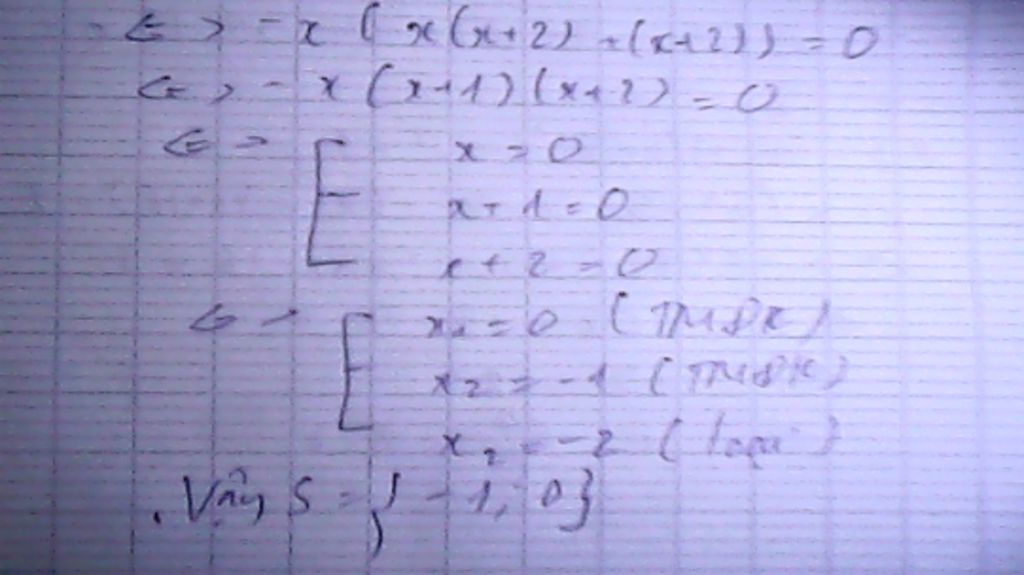 <=> -x(x(x+2)+(x+2)) = 0
<=> -x(x+1)(x+2) = 0
<=> [ x = 0
x+1 = 0
x+2 = 0
<=> [ x1 = 0 (TMĐK)
x2 = -1 (TMĐK)
x2 = -2 (loại)
. Vậy S = {-1; 0}